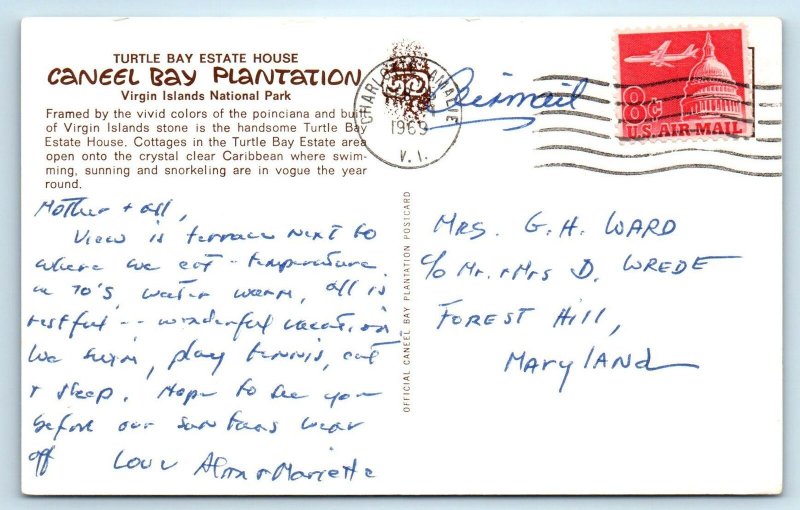 TURTLE BAY ESTATE HOUSE
CANEEL BAY PLANTATION
Virgin Islands National Park
Framed by the vivid colors of the poinciana and built
of Virgin Islands stone is the handsome Turtle Bay
Estate House. Cottages in the Turtle Bay Estate area
open onto the crystal clear Caribbean where swim-
ming, sunning and snorkeling are in vogue the year
round.
CHARLOTTE AMALIE
1969
V. I.
Airmail
8¢
U.S. AIR-MAIL
Mother + all,
View is terrace next to
where we eat - temperature
in 70's, water warm, all is
restful -- wonderful vacation
We swim, play tennis, eat
+ sleep. Hope to see you
before our sun tans wear
off Love Alan + Mariette
OFFICIAL CANEEL BAY PLANTATION POSTCARD
MRS. G. H. WARD
c/o Mr. + Mrs D. WREDE
FOREST Hill,
MARYLAND